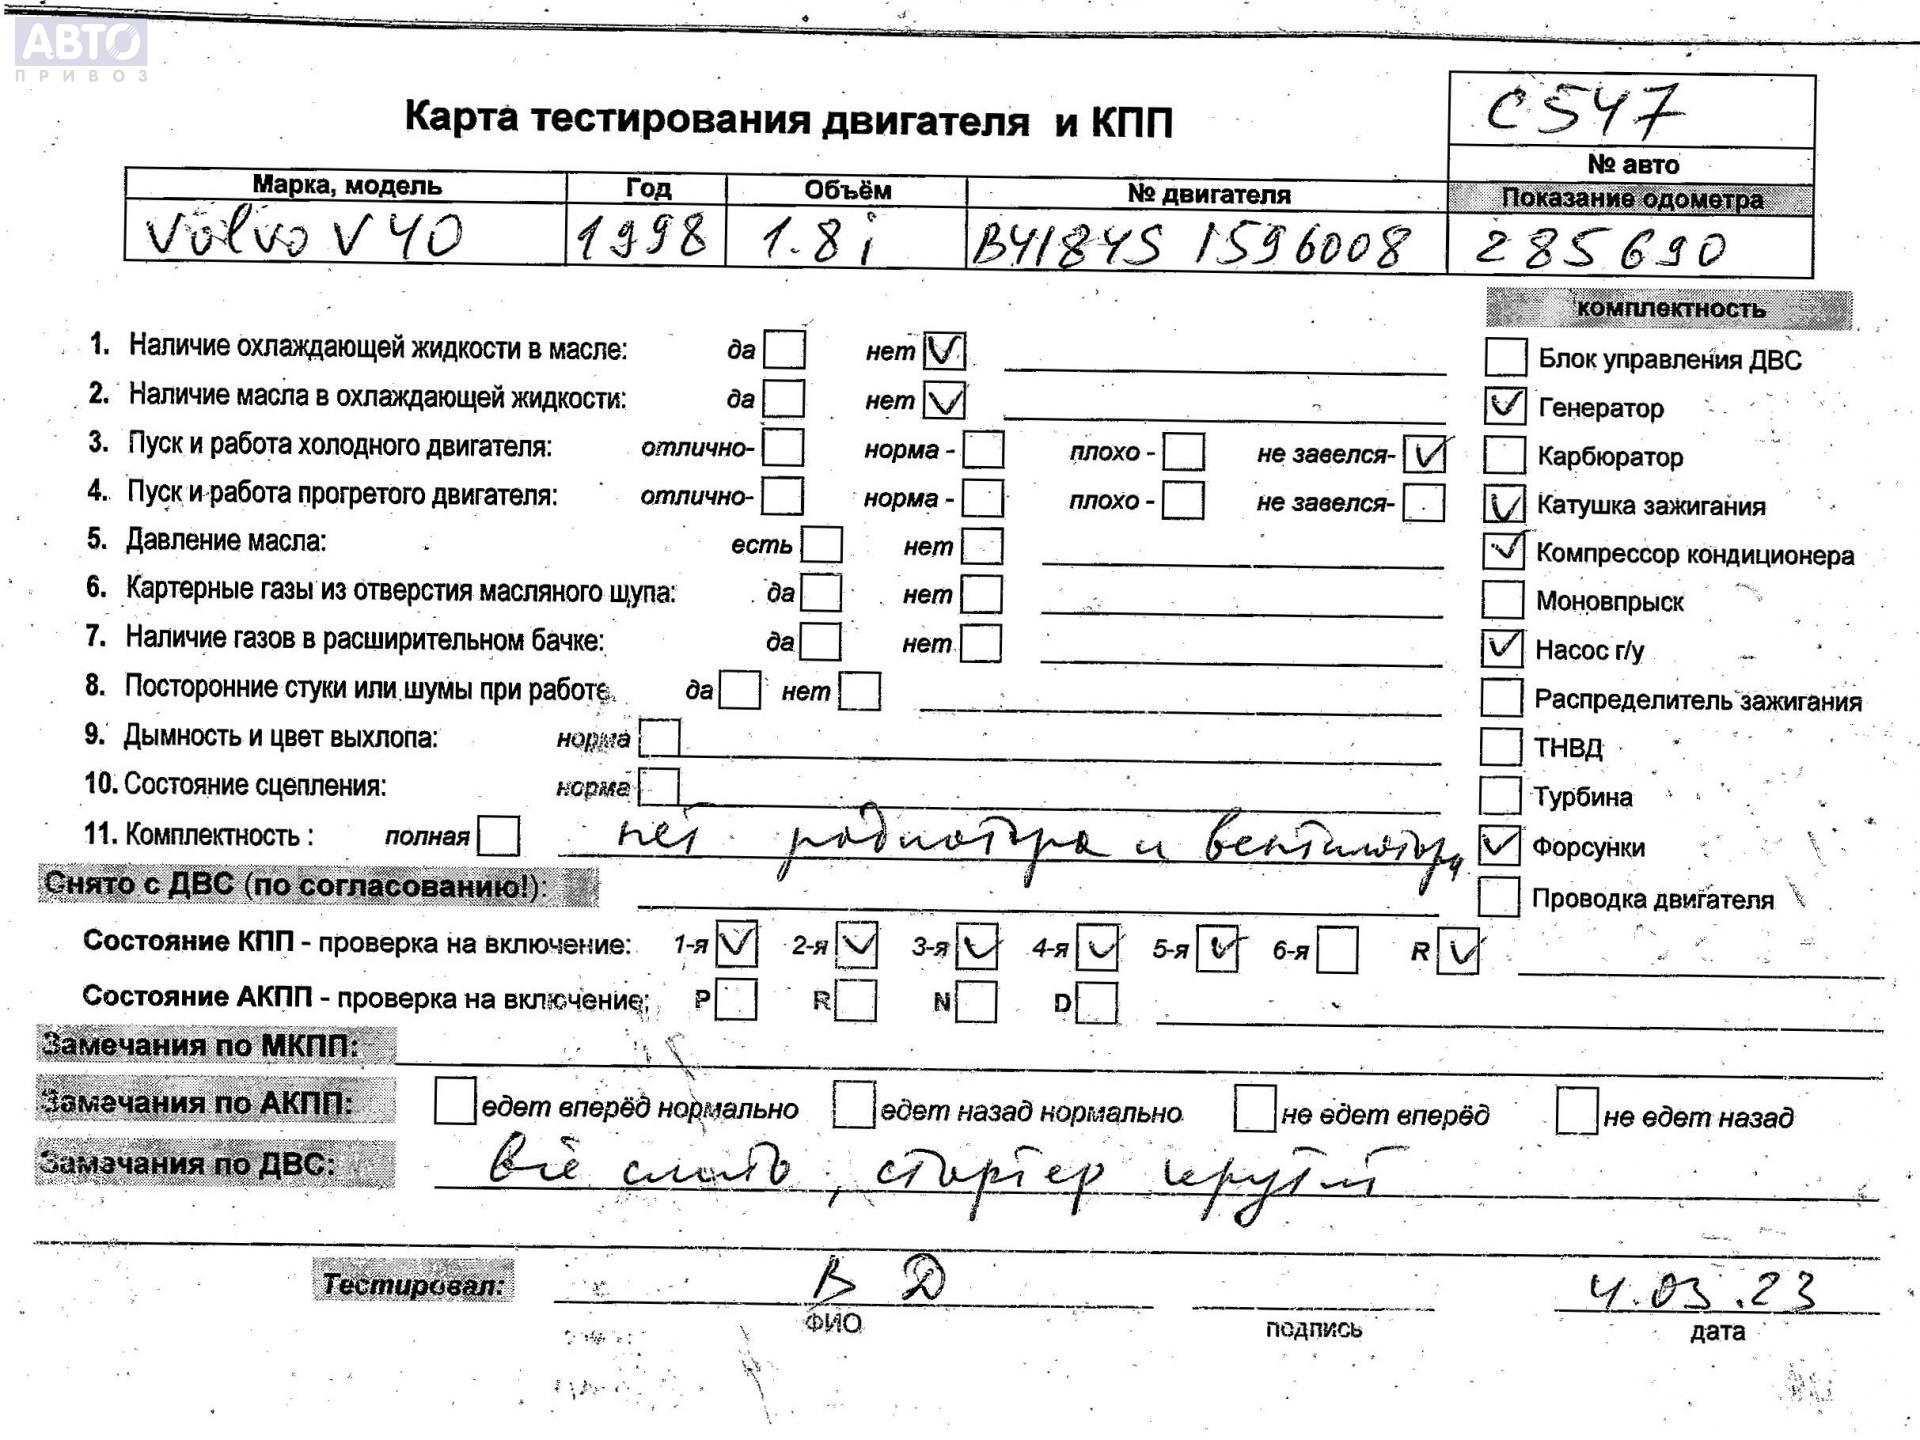 АВТО
ПРИВОЗ
Карта тестирования двигателя и КПП
С547
№ авто
Марка, модель Год Объём № двигателя Показание одометра
Volvo V40 1998 1.8i B4184S 1596008 285690
комплектность
1. Наличие охлаждающей жидкости в масле: да нет
Блок управления ДВС
2. Наличие масла в охлаждающей жидкости: да нет
Генератор
3. Пуск и работа холодного двигателя: отлично- норма - плохо - не завелся-
Карбюратор
4. Пуск и работа прогретого двигателя: отлично- норма - плохо - не завелся-
Катушка зажигания
5. Давление масла: есть нет
Компрессор кондиционера
6. Картерные газы из отверстия масляного щупа: да нет
Моновпрыск
7. Наличие газов в расширительном бачке: да нет
Насос г/у
8. Посторонние стуки или шумы при работе. да нет
Распределитель зажигания
9. Дымность и цвет выхлопа: норма
ТНВД
10. Состояние сцепления: норма
Турбина
11. Комплектность : полная нет радиатора и вентилятора
Форсунки
Снято с ДВС (по согласованию!):
Проводка двигателя
Состояние КПП - проверка на включение: 1-я 2-я 3-я 4-я 5-я 6-я R
Состояние АКПП - проверка на включение: P R N D
Замечания по МКПП:
Замечания по АКПП: едет вперёд нормально едет назад нормально не едет вперёд не едет назад
Замечания по ДВС: всё слито, стартер крутит
Тестировал: В Д 4.03.23
ФИО подпись дата